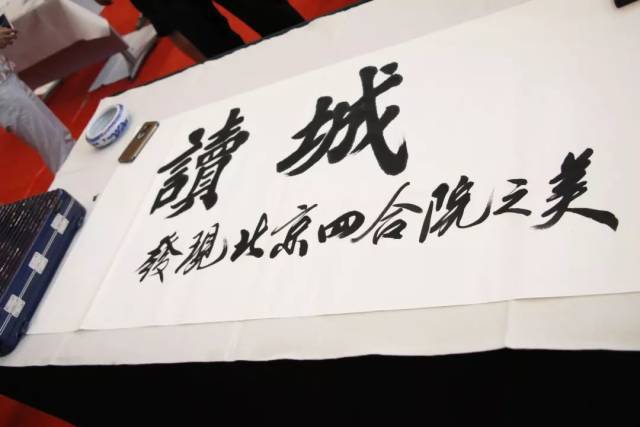 讀城
發現北京四合院之美